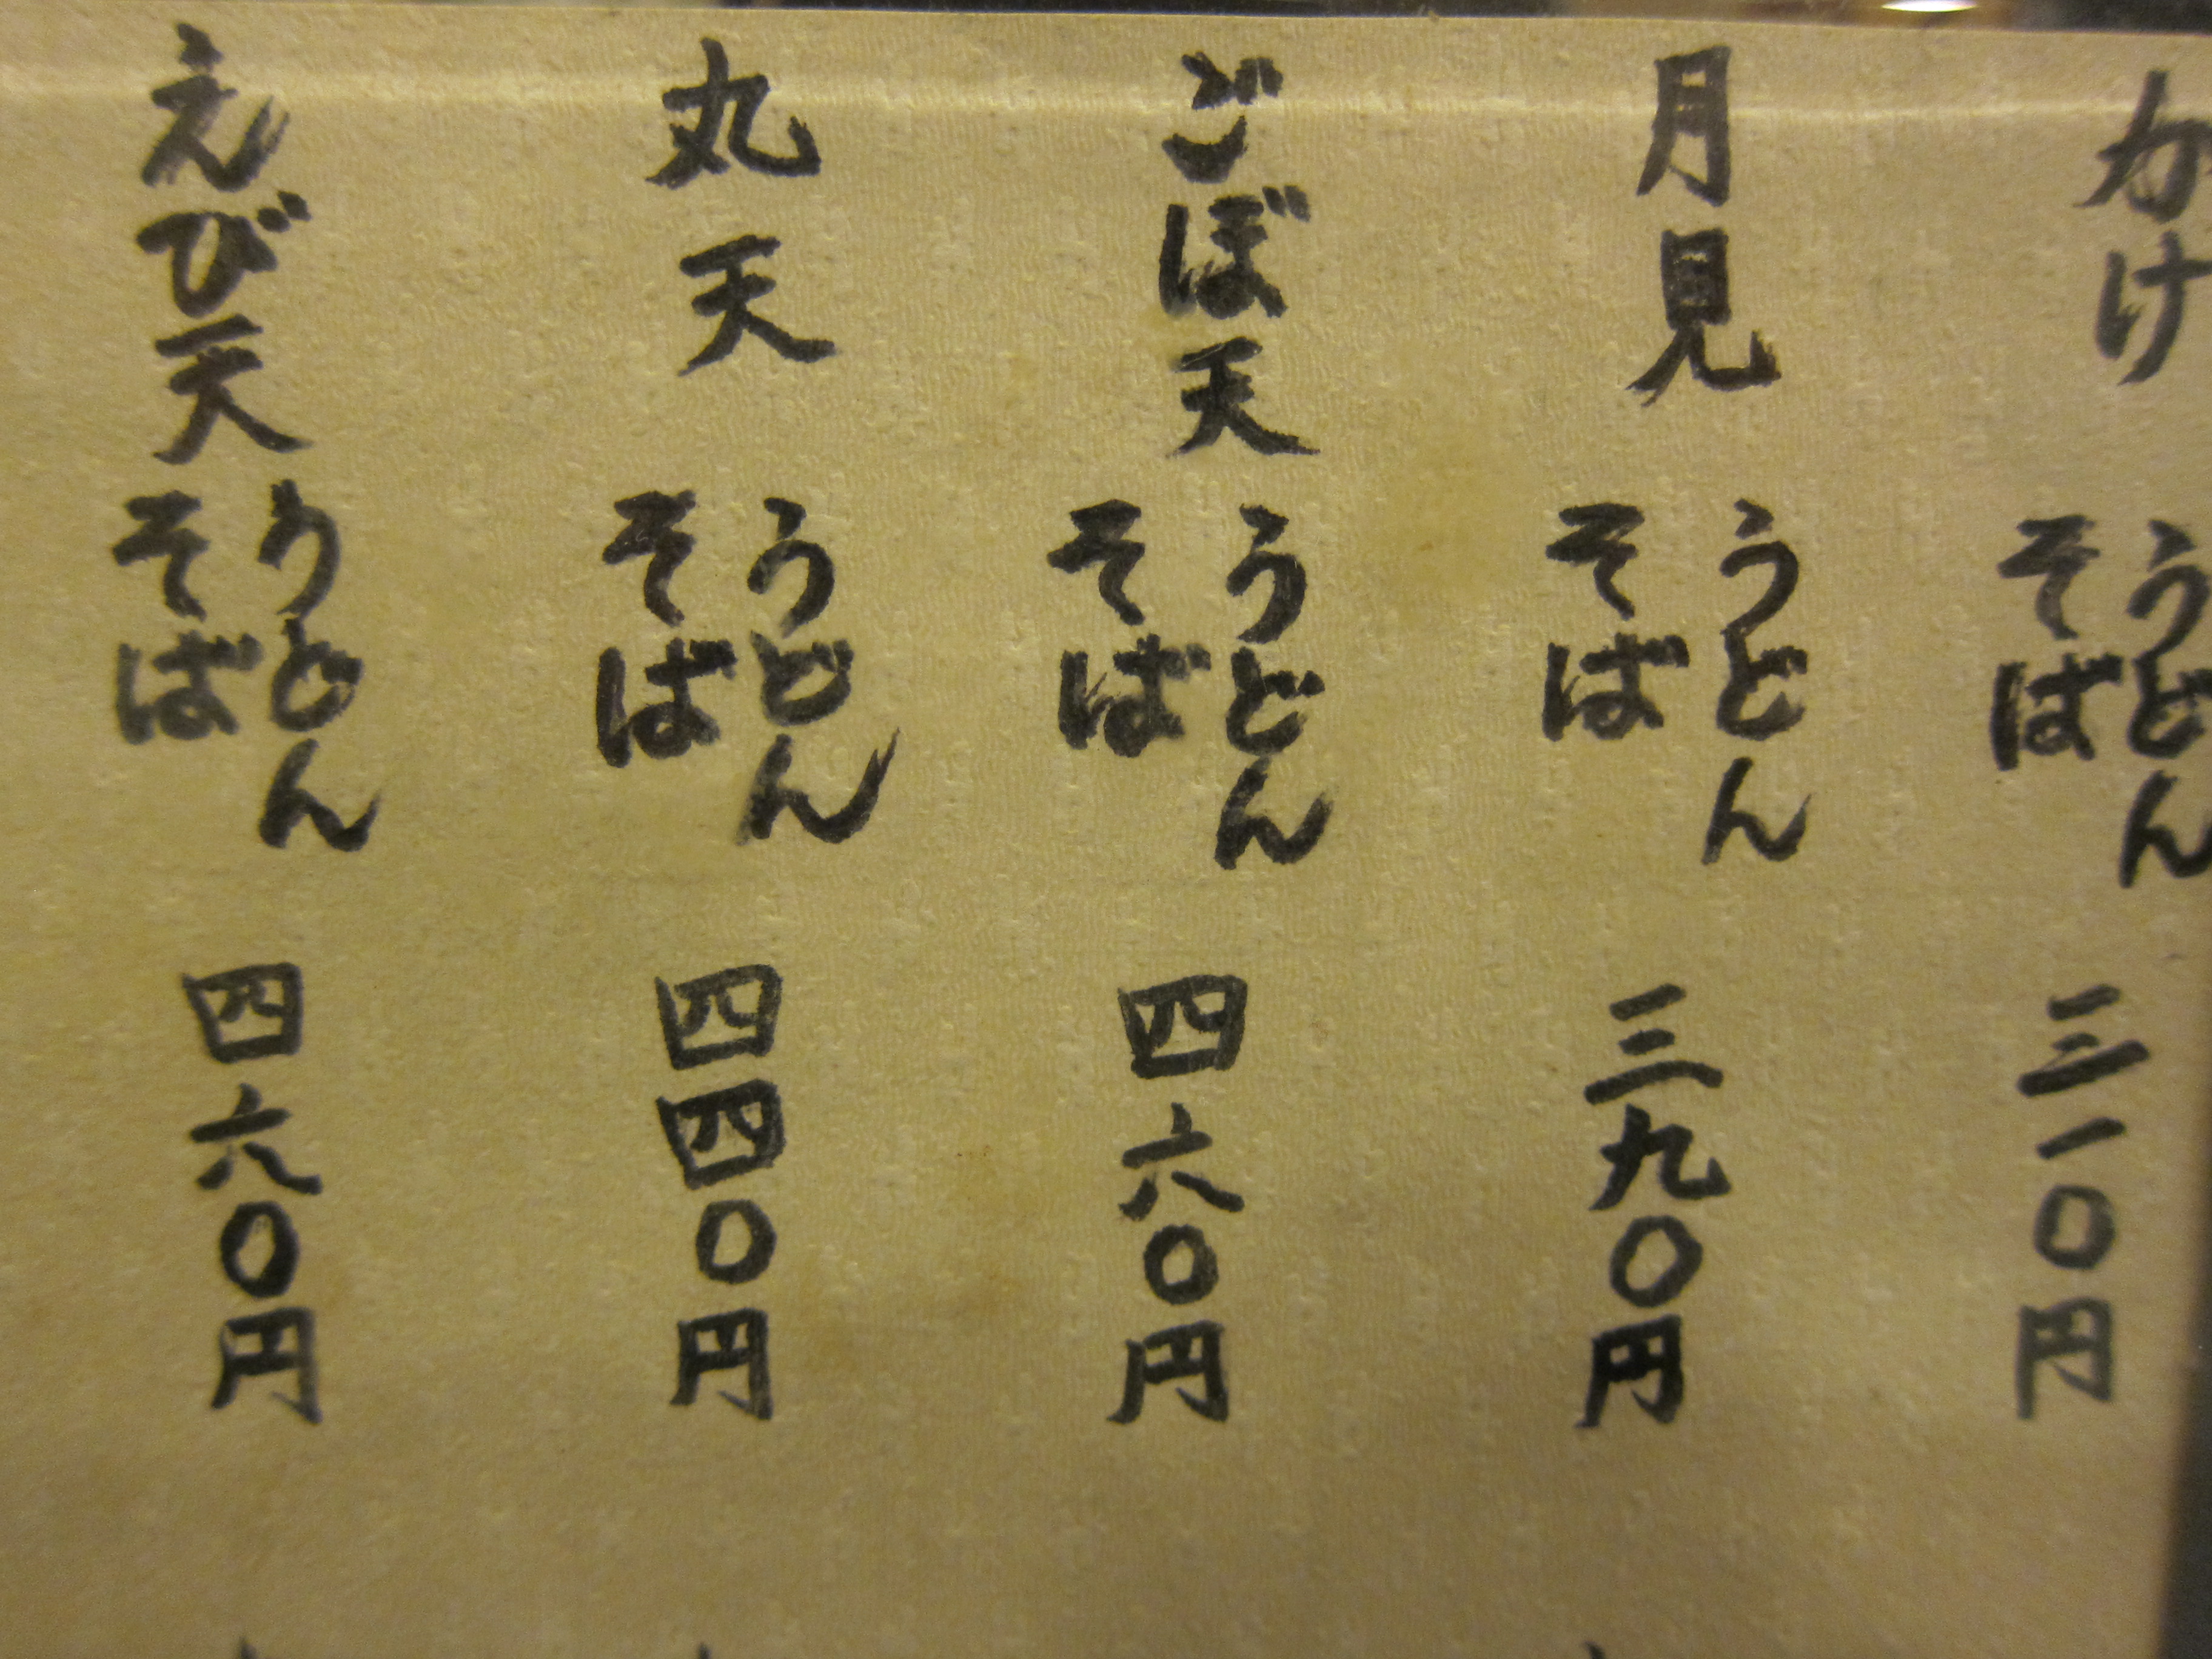 かけ
うどん
そば
三一〇円
月見
うどん
そば
三九〇円
ごぼ天
うどん
そば
四六〇円
丸天
うどん
そば
四四〇円
えび天
うどん
そば
四六〇円